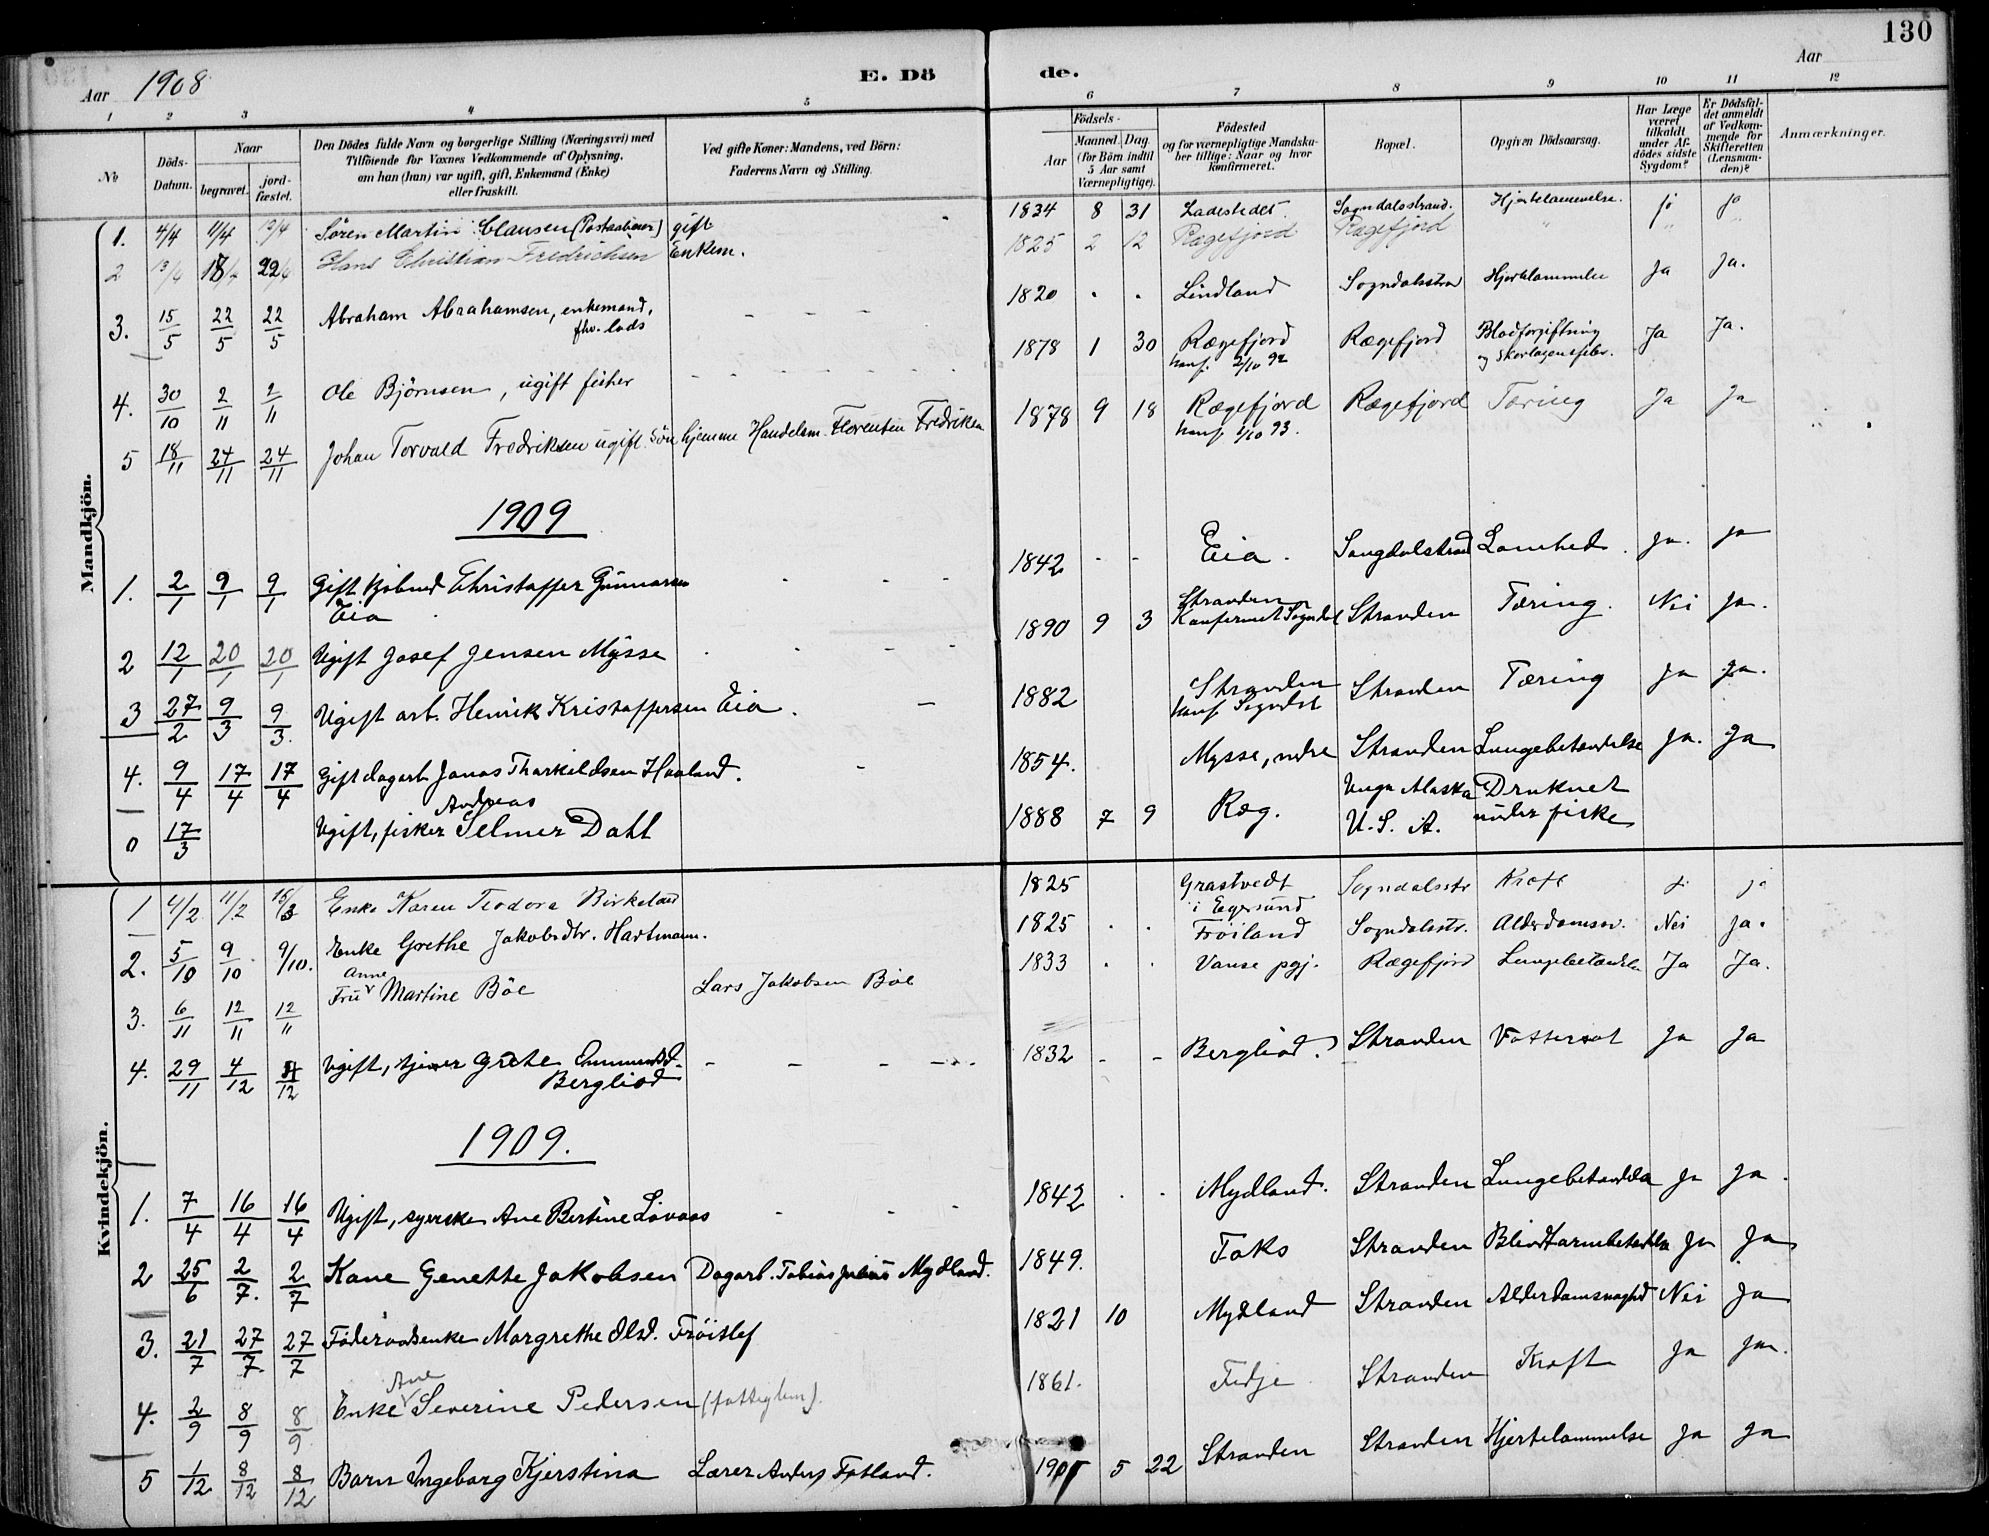 130
Aar 1908 E. Dö de. Aar
1 2 3 4 5 6 7 8 9 10 11 12
No
Döds-Datum.
Naar
begravet.
jord-fæstet.
Den Dödes fulde Navn og borgerlige Stilling (Næringsvei) med
Tilföiende for Voxnes Vedkommende af Oplysning,
om han (hun) var ugift, gift, Enkemand (Enke)
eller fraskilt.
Ved gifte Koner: Mandens, ved Börn:
Faderens Navn og Stilling.
Födsels-
Aar
Maaned. Dag.
(for Börn indtil
5 Aar samt
Værnepligtige).
Födested
og for værnepligtige Mandska-
ber tillige: Naar og hvor
konfirmeret.
Bopæl.
Opgiven Dödsaarsag.
Har Læge
været
tilkaldt
under Af-
dödes sidste
Sygdom?
Er Dödsfal-
det anmeldt
af Vedkom-
mende for
Skifteretten
(Lensman-
den)?
Anmærkninger.
Mandkjön.
1. 4/4 11/4 Sören Martin Clausen (Postaabner) gift 1834 8 31 Ladestedet Sogndalsstrand. Hjertelammelse. ja ja
2 18/4 22/4 Hans Christian Fredrichsen Enkem. 1825 2 12 Rægefjord Rægefjord " " "
3. 15/5 22/5 22/5 Abraham Abrahamsen, enkemand, fhv. lods 1820 Lindland Sogndalsstra Hjertelammelse Ja Ja.
4. 30/10 2/11 2/11 Ole Björnsen, ugift fisker 1878 1 30 Rægefjord konf. 2/10 92 Rægefjord Blodforgiftning og skarlagensfeber. Ja Ja.
5 18/11 24/11 24/11 Johan Torvald Fredriksen ugift Sön hjemme Handelsm. Florentin Fredriksen 1878 9 18 Rægefjord konf 1/10 93. Rægefjord Tæring Ja Ja
1909
1. 2/1 9/1 9/1 Gift Kjöbmd Christoffer Gunnarsen Eia 1842 - - Eia. Songdalstrand Lamhed. ja. ja
2 12/1 20/1 20/1 Ugift Josef Jensen Mysse 1890 9 3 Stranden Konfirmert Sogndal Stranden Tæring. Nei ja.
3 27/2 9/3 9/3. Ugift arb. Henrik Kristoffersen Eia. 1882 Stranden konf Sogndal Stranden Tæring ja ja.
4. 9/4 17/4 17/4 Gift dagarb Jonas Tharkildsen Haaland. 1854. Mysse, ndre Stranden Lungebetændelse ja. ja
0 17/3 Ugift, fisker Andreas Selmer Dahl 1888 7 9 Ræg. Unga Alaska U. S. A. Druknet under fiske
Kvindekjön.
1 4/2 11/2 15/3 Enke Karen Teodora Birkeland 1825 Grastvedt i Egersund Sogndalsstr Kræft ja ja
2. 5/10 9/10 9/10. Enke Grethe Jakobsdtr. Hartmann. 1825 Fröiland Sogndalsstr. Alderdomssv. Nei ja.
3. 6/11 12/11 12/11 Fru Anne Martine Böe Lars Jakobsen Böe 1833 Vanse pgj. Rægefjord Lungebetændelse Ja Ja.
4. 29/11 4/12 4/12 Ugift, tjener Grete Ommundsd. Bergliod 1832 - - Bergliod. Stranden Vattersot ja ja
1909.
1. 7/4 16/4 16/4 Ugift, syerske Ane Bertine Lövaas 1842 Mydland. Stranden Lungebetændelse ja ja
2 25/6 2/7. 2/7 Kone Genette Jakobsen Dagarb. Tobias Julius Mydland. 1849. Foks Stranden Blindtarmbetændelse ja ja
3. 21/7 27/7. 27/7 Föderaadsenke Margrethe Olsd. Tröitlef 1821 10 Mydland Stranden Alderdomsvaghed Nei ja
4. 2/9 8/9 8/9. Enke Ane Severine Pedersen (fattiglem). 1861. Fidje Stranden Kræft ja ja.
5 1/12 8/12 8/12 Barn Ingeborg Kjerstina Lærer Anders Fotland. 5 22 Stranden Stranden Hjertelammelse ja ja